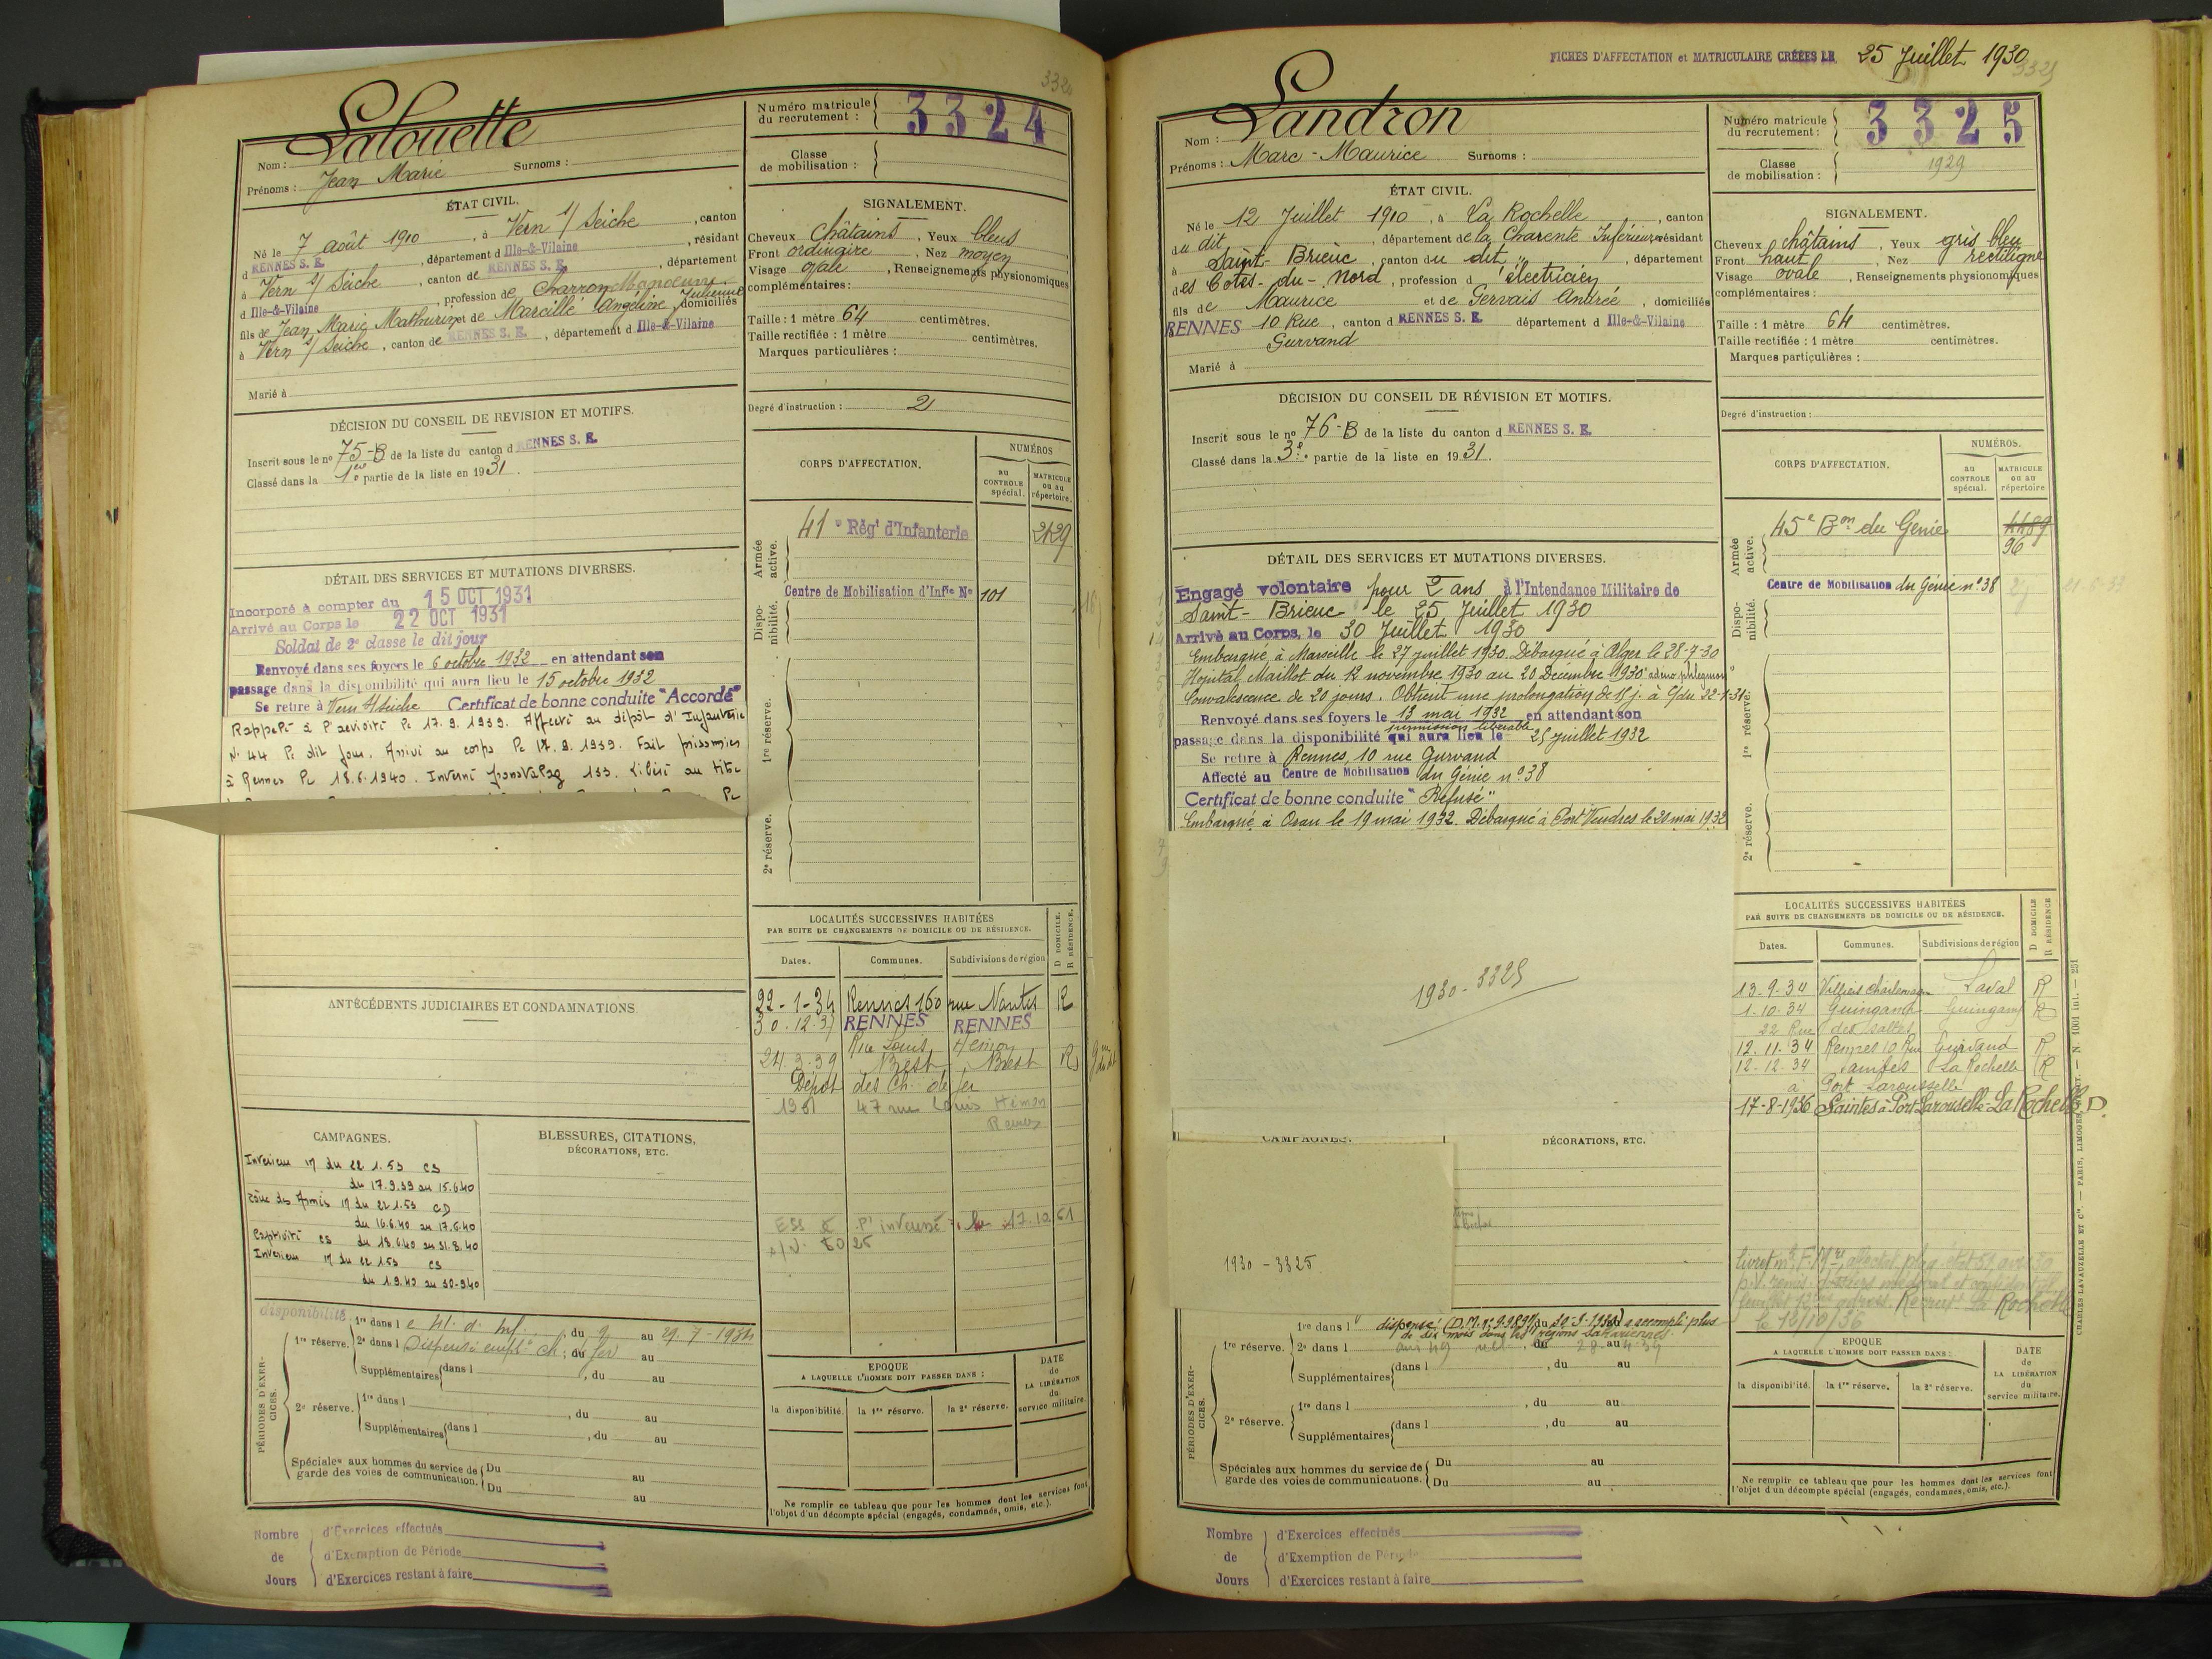 3324
Lalouette
Nom :
Prénoms : Jean Marie Surnoms :
Numéro matricule du recrutement : 3324
Classe de mobilisation :
ÉTAT CIVIL.
Né le 7 août 1910, à Vern s/ Seiche, canton
d RENNES S. E., département d Ille-&-Vilaine, résidant
à Vern s/ Seiche, canton de RENNES S. E., département
d Ille-&-Vilaine, profession de Charron Manœuvre
fils de Jean Marie Mathurin et de Marcillé Angéline Julienne, domiciliés
à Vern s/ Seiche, canton de RENNES S. E., département d Ille-&-Vilaine
Marié à
SIGNALEMENT.
Cheveux châtains, Yeux bleus
Front ordinaire, Nez moyen
Visage ovale, Renseignements physionomiques
complémentaires :
Taille : 1 mètre 64 centimètres.
Taille rectifiée : 1 mètre centimètres.
Marques particulières :
Degré d'instruction : 2
DÉCISION DU CONSEIL DE REVISION ET MOTIFS.
Inscrit sous le nº 75-B de la liste du canton d RENNES S. E.
Classé dans la 1ère partie de la liste en 1931.
CORPS D'AFFECTATION.
NUMÉROS
au CONTROLE spécial.
MATRICULE ou au répertoire.
Armée active.
41e Régt d'Infanterie 2429
Dispo-nibilité.
Centre de Mobilisation d'Infie Nº 101
1re réserve.
2e réserve.
DÉTAIL DES SERVICES ET MUTATIONS DIVERSES.
Incorporé à compter du 15 OCT 1931
Arrivé au Corps le 22 OCT 1931
Soldat de 2e classe le dit jour
Renvoyé dans ses foyers le 6 octobre 1932 en attendant son
passage dans la disponibilité qui aura lieu le 15 octobre 1932
Se retire à Vern s/ Seiche Certificat de bonne conduite "Accordé"
Rappelé à l'activité le 17.9.1939. Affecté au dépôt d'Infanterie
Nº 44 le dit jour. Arrivé au corps le 17.9.1939. Fait prisonnier
à Rennes le 18.6.1940. Interné fronstalag 133. Libéré au titre
ANTÉCÉDENTS JUDICIAIRES ET CONDAMNATIONS
LOCALITÉS SUCCESSIVES HABITÉES
PAR SUITE DE CHANGEMENTS DE DOMICILE OU DE RÉSIDENCE.
Dates. Communes. Subdivisions de région D DOMICILE. R RÉSIDENCE.
22-1-34 Rennes 160 rue Nantes R
30.12.37 RENNES RENNES
Rue Louis Hémon
24.3.39 Brest Brest R
Dépôt des Ch. de fer
1951 47 rue Louis Hémon
Rennes
CAMPAGNES.
Intérieur IM du 22 1.53 CS
du 17.9.39 au 15.6.40
Zône des Armées IM du 22.1.53 CD
du 16.6.40 au 17.6.40
Captivité CS du 18.6.40 au 31.8.40
Intérieur IM du 22 1.53 CS
du 1.9.40 au 30-9.40
BLESSURES, CITATIONS,
DÉCORATIONS, ETC.
disponibilité
PÉRIODES D'EXER-CICES.
1re réserve. 1re dans l du 9 au 29-7-1934
2e dans l Dispensé empl. Ch. du fer au
Supplémentaires dans l, du au
2e réserve. 1re dans l, du au
Supplémentaires dans l, du au
Spéciales aux hommes du service de garde des voies de communication. Du au
Du au
EPOQUE
A LAQUELLE L'HOMME DOIT PASSER DANS :
la disponibilité. la 1re réserve. la 2e réserve.
DATE de LA LIBÉRATION du service militaire.
Ne remplir ce tableau que pour les hommes dont les services font
l'objet d'un décompte spécial (engagés, condamnés, omis, etc.).
Nombre de Jours
d'Exercices effectués
d'Exemption de Période
d'Exercices restant à faire
FICHES D'AFFECTATION et MATRICULAIRE CRÉÉES LE 25 Juillet 1930
3325
Landron
Nom :
Prénoms : Marc-Maurice Surnoms :
Numéro matricule du recrutement : 3325
Classe de mobilisation : 1929
ÉTAT CIVIL.
Né le 12 Juillet 1910, à La Rochelle, canton
du dit, département de la Charente Inférieure, résidant
à Saint-Brieuc, canton du dit, département
des Côtes-du-Nord, profession d'électricien
fils de Maurice et de Gervais Andrée, domiciliés
RENNES 10 Rue, canton d RENNES S. E. département d Ille-&-Vilaine
Gurvand
Marié à
SIGNALEMENT.
Cheveux châtains, Yeux gris bleu
Front haut, Nez rectiligne
Visage ovale, Renseignements physionomiques
complémentaires :
Taille : 1 mètre 64 centimètres.
Taille rectifiée : 1 mètre centimètres.
Marques particulières :
Degré d'instruction :
DÉCISION DU CONSEIL DE RÉVISION ET MOTIFS.
Inscrit sous le nº 76-B de la liste du canton d RENNES S. E.
Classé dans la 3e partie de la liste en 1931.
CORPS D'AFFECTATION.
NUMÉROS.
au CONTROLE spécial.
MATRICULE ou au répertoire
Armée active.
45e Bon du Génie 4489
96
Dispo-nibilité.
Centre de Mobilisation du Génie nº 38
1re réserve.
2e réserve.
DÉTAIL DES SERVICES ET MUTATIONS DIVERSES.
Engagé volontaire pour 2 ans à l'Intendance Militaire de
Saint-Brieuc le 25 Juillet 1930
Arrivé au Corps, le 30 Juillet 1930
Embarqué à Marseille le 27 juillet 1930. Débarqué à Alger le 28-7-30
Hôpital Maillot du 12 novembre 1930 au 20 Décembre 1930 "adéno phlegmon"
Convalescence de 20 jours. Obtient une prolongation de 15 j. à c/du 22-1-31
Renvoyé dans ses foyers le 13 mai 1932 en attendant son
permission libérable
passage dans la disponibilité qui aura lieu le 25 juillet 1932
Se retire à Rennes, 10 rue Gurvand
Affecté au Centre de Mobilisation du Génie nº 38
Certificat de bonne conduite "Refusé"
Embarqué à Oran le 19 mai 1932. Débarqué à Port Vendres le 20 mai 1932
1930-3325
LOCALITÉS SUCCESSIVES HABITÉES
PAR SUITE DE CHANGEMENTS DE DOMICILE OU DE RÉSIDENCE.
Dates. Communes. Subdivisions de région D DOMICILE R RÉSIDENCE
13-9-34 Villiers Charlemagne Laval R
1-10-34 Guingamp Guingamp R
22 Rue des Salles
12.11.34 Rennes 10 Rue Gurvand R
12-12-34 Saintes La Rochelle R
à Port Larousselle
17-8-1936 Saintes à Port Larouselle La Rochelle D
CAMPAGNES.
DÉCORATIONS, ETC.
1930-3325
le 16/10/36
PÉRIODES D'EXER-CICES.
1re réserve. 1re dans l dispensé (D.M. nº 9.989/ du 30-9-1933) a accompli plus
de dix mois dans les régions sahariennes.
2e dans l, du 28 au
Supplémentaires dans l, du au
2e réserve. 1re dans l, du au
Supplémentaires dans l, du au
Spéciales aux hommes du service de garde des voies de communications. Du au
Du au
EPOQUE
A LAQUELLE L'HOMME DOIT PASSER DANS :
la disponibilité. la 1re réserve. la 2e réserve.
DATE de LA LIBÉRATION du service militaire.
Ne remplir ce tableau que pour les hommes dont les services font
l'objet d'un décompte spécial (engagés, condamnés, omis, etc.).
CHARLES-LAVAUZELLE ET Cie. — PARIS, LIMOGES, NANCY. — N. 1001 int. — 251
Nombre de Jours
d'Exercices effectués
d'Exemption de Période
d'Exercices restant à faire